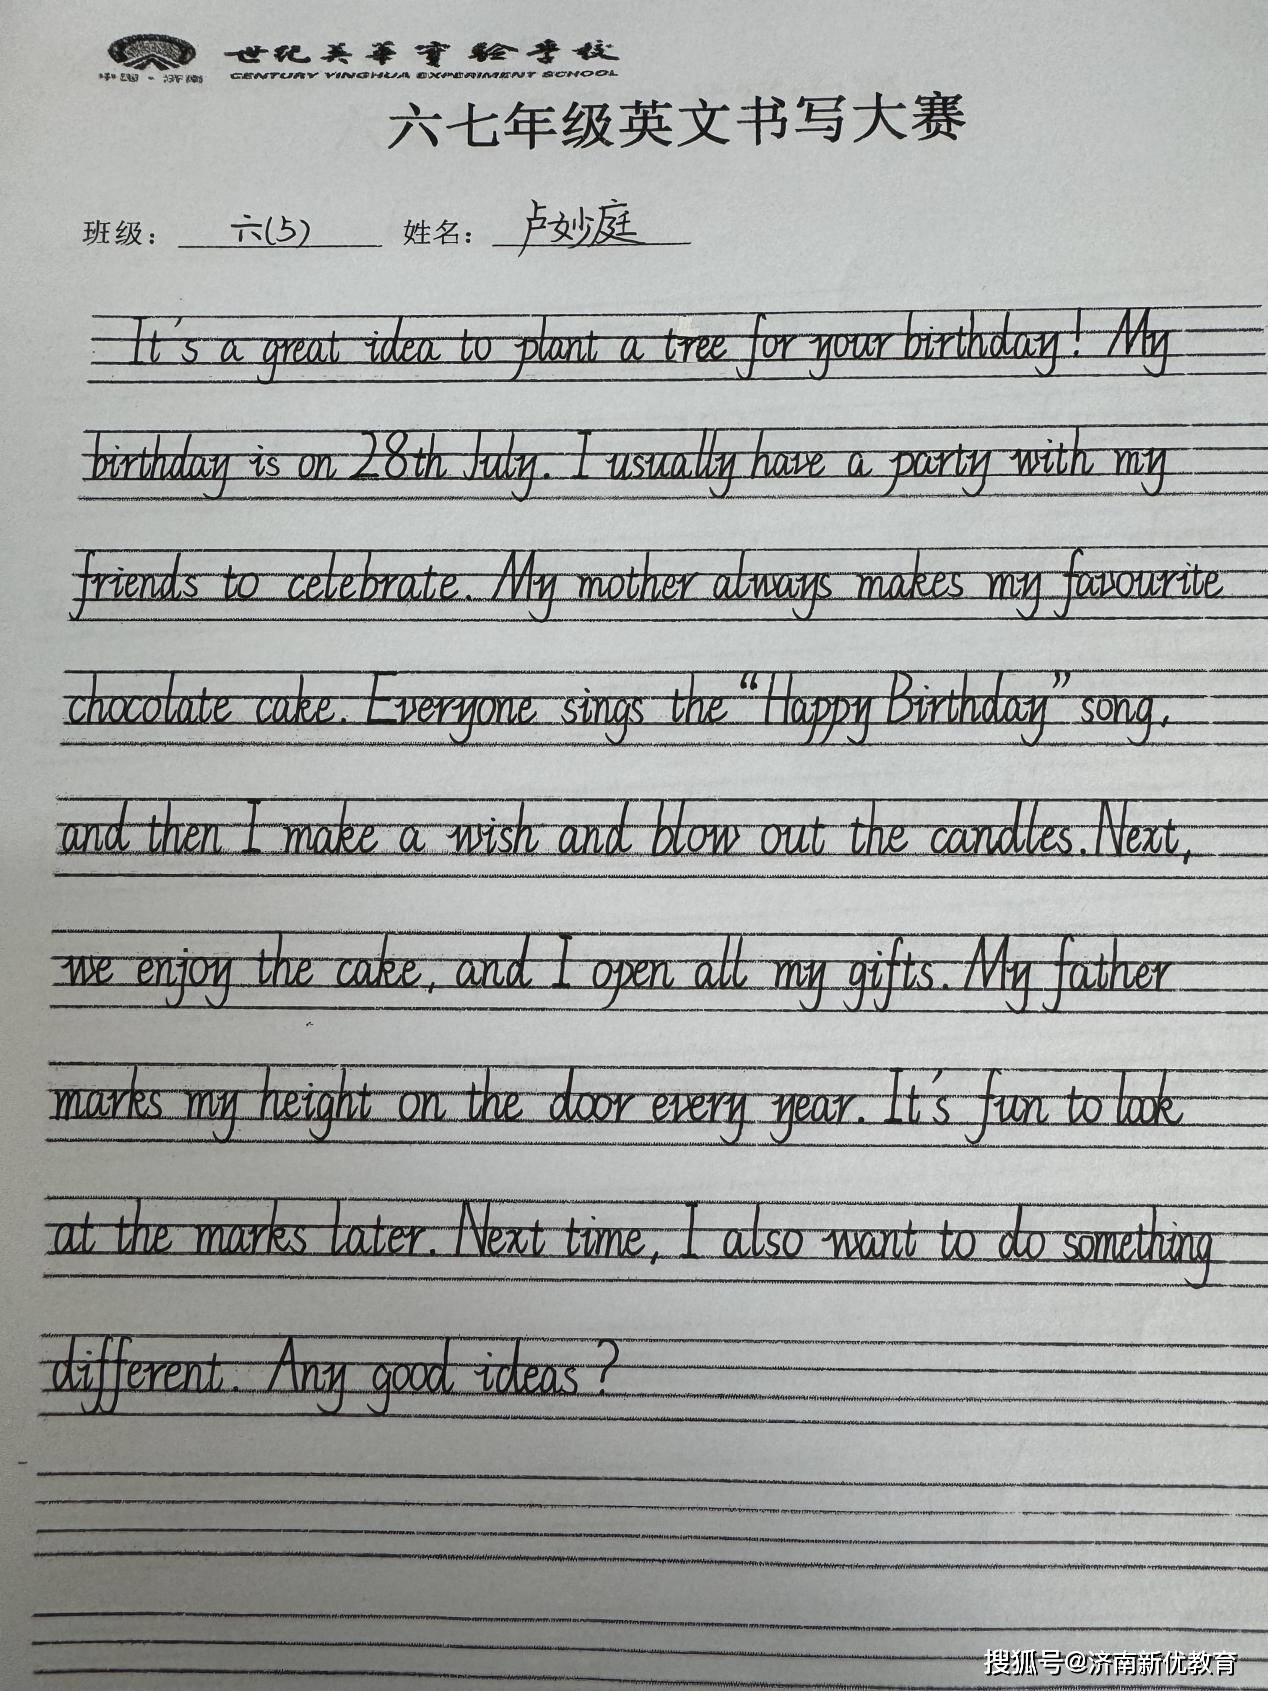 世纪英华实验学校
中国·济南
CENTURY YINGHUA EXPERIMENT SCHOOL
六七年级英文书写大赛
班级： 六(5) 姓名： 卢妙庭
It's a great idea to plant a tree for your birthday! My
birthday is on 28th July. I usually have a party with my
friends to celebrate. My mother always makes my favourite
chocolate cake. Everyone sings the “Happy Birthday” song,
and then I make a wish and blow out the candles. Next,
we enjoy the cake, and I open all my gifts. My father
marks my height on the door every year. It's fun to look
at the marks later. Next time, I also want to do something
different. Any good ideas?
搜狐号@济南新优教育